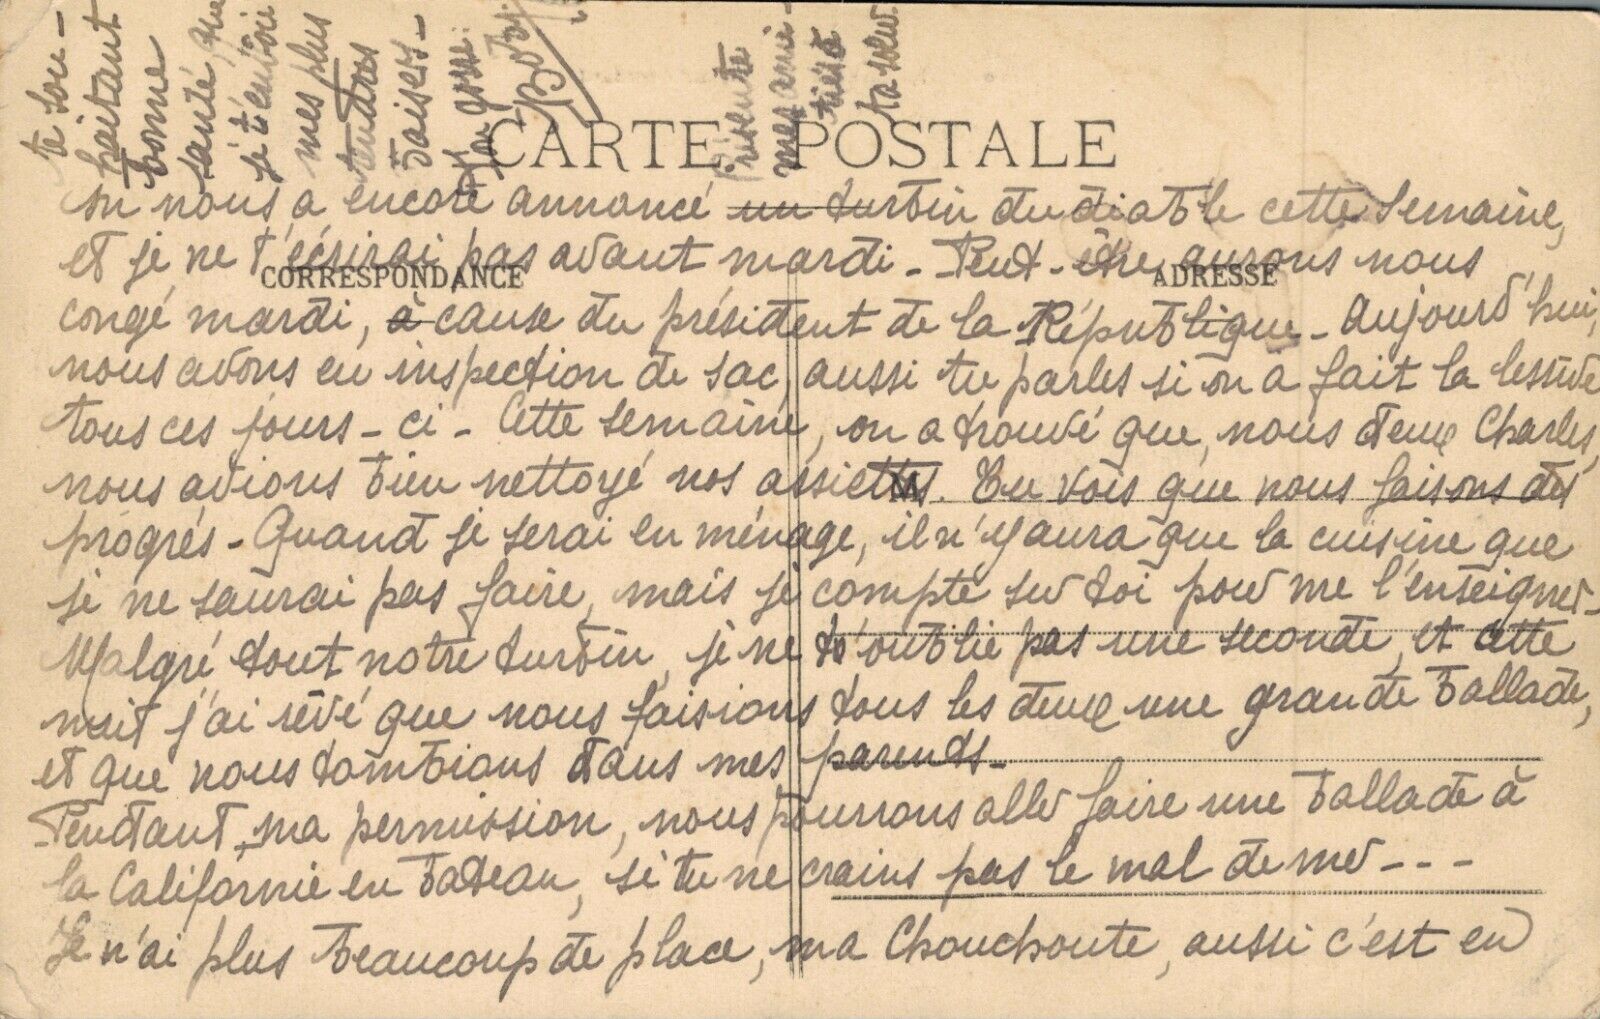 CARTE POSTALE
CORRESPONDANCE
ADRESSE
on nous a encore annoncé un turbin du diable cette semaine,
et je ne t'écrirai pas avant mardi - Peut-être aurons nous
congé mardi, à cause du président de la République - Aujourd'hui,
nous avons eu inspection de sac, aussi tu parles si on a fait la lessive
tous ces jours-ci - Cette semaine, on a trouvé que, nous deux Charles,
nous avions bien nettoyé nos assiettes. Tu vois que nous faisons des
progrès - Quand je serai en ménage, il n'y aura que la cuisine que
je ne saurai pas faire, mais je compte sur toi pour me l'enseigner -
Malgré tout notre turbin, je ne t'oublie pas une seconde, et cette
nuit j'ai rêvé que nous faisions tous les deux une grande ballade,
et que nous tombions dans mes parents -
Pendant ma permission, nous pourrons aller faire une ballade à
la Californie en bateau, si tu ne crains pas le mal de mer - - -
Je n'ai plus beaucoup de place, ma Chouchoute, aussi c'est en
te sou-
haitant
bonne
santé, que
je t'envoie
mes plus
tendres
baisers -
Ton gosse:
Bob.
Présente
mes ami-
tiés à
ta sœur.